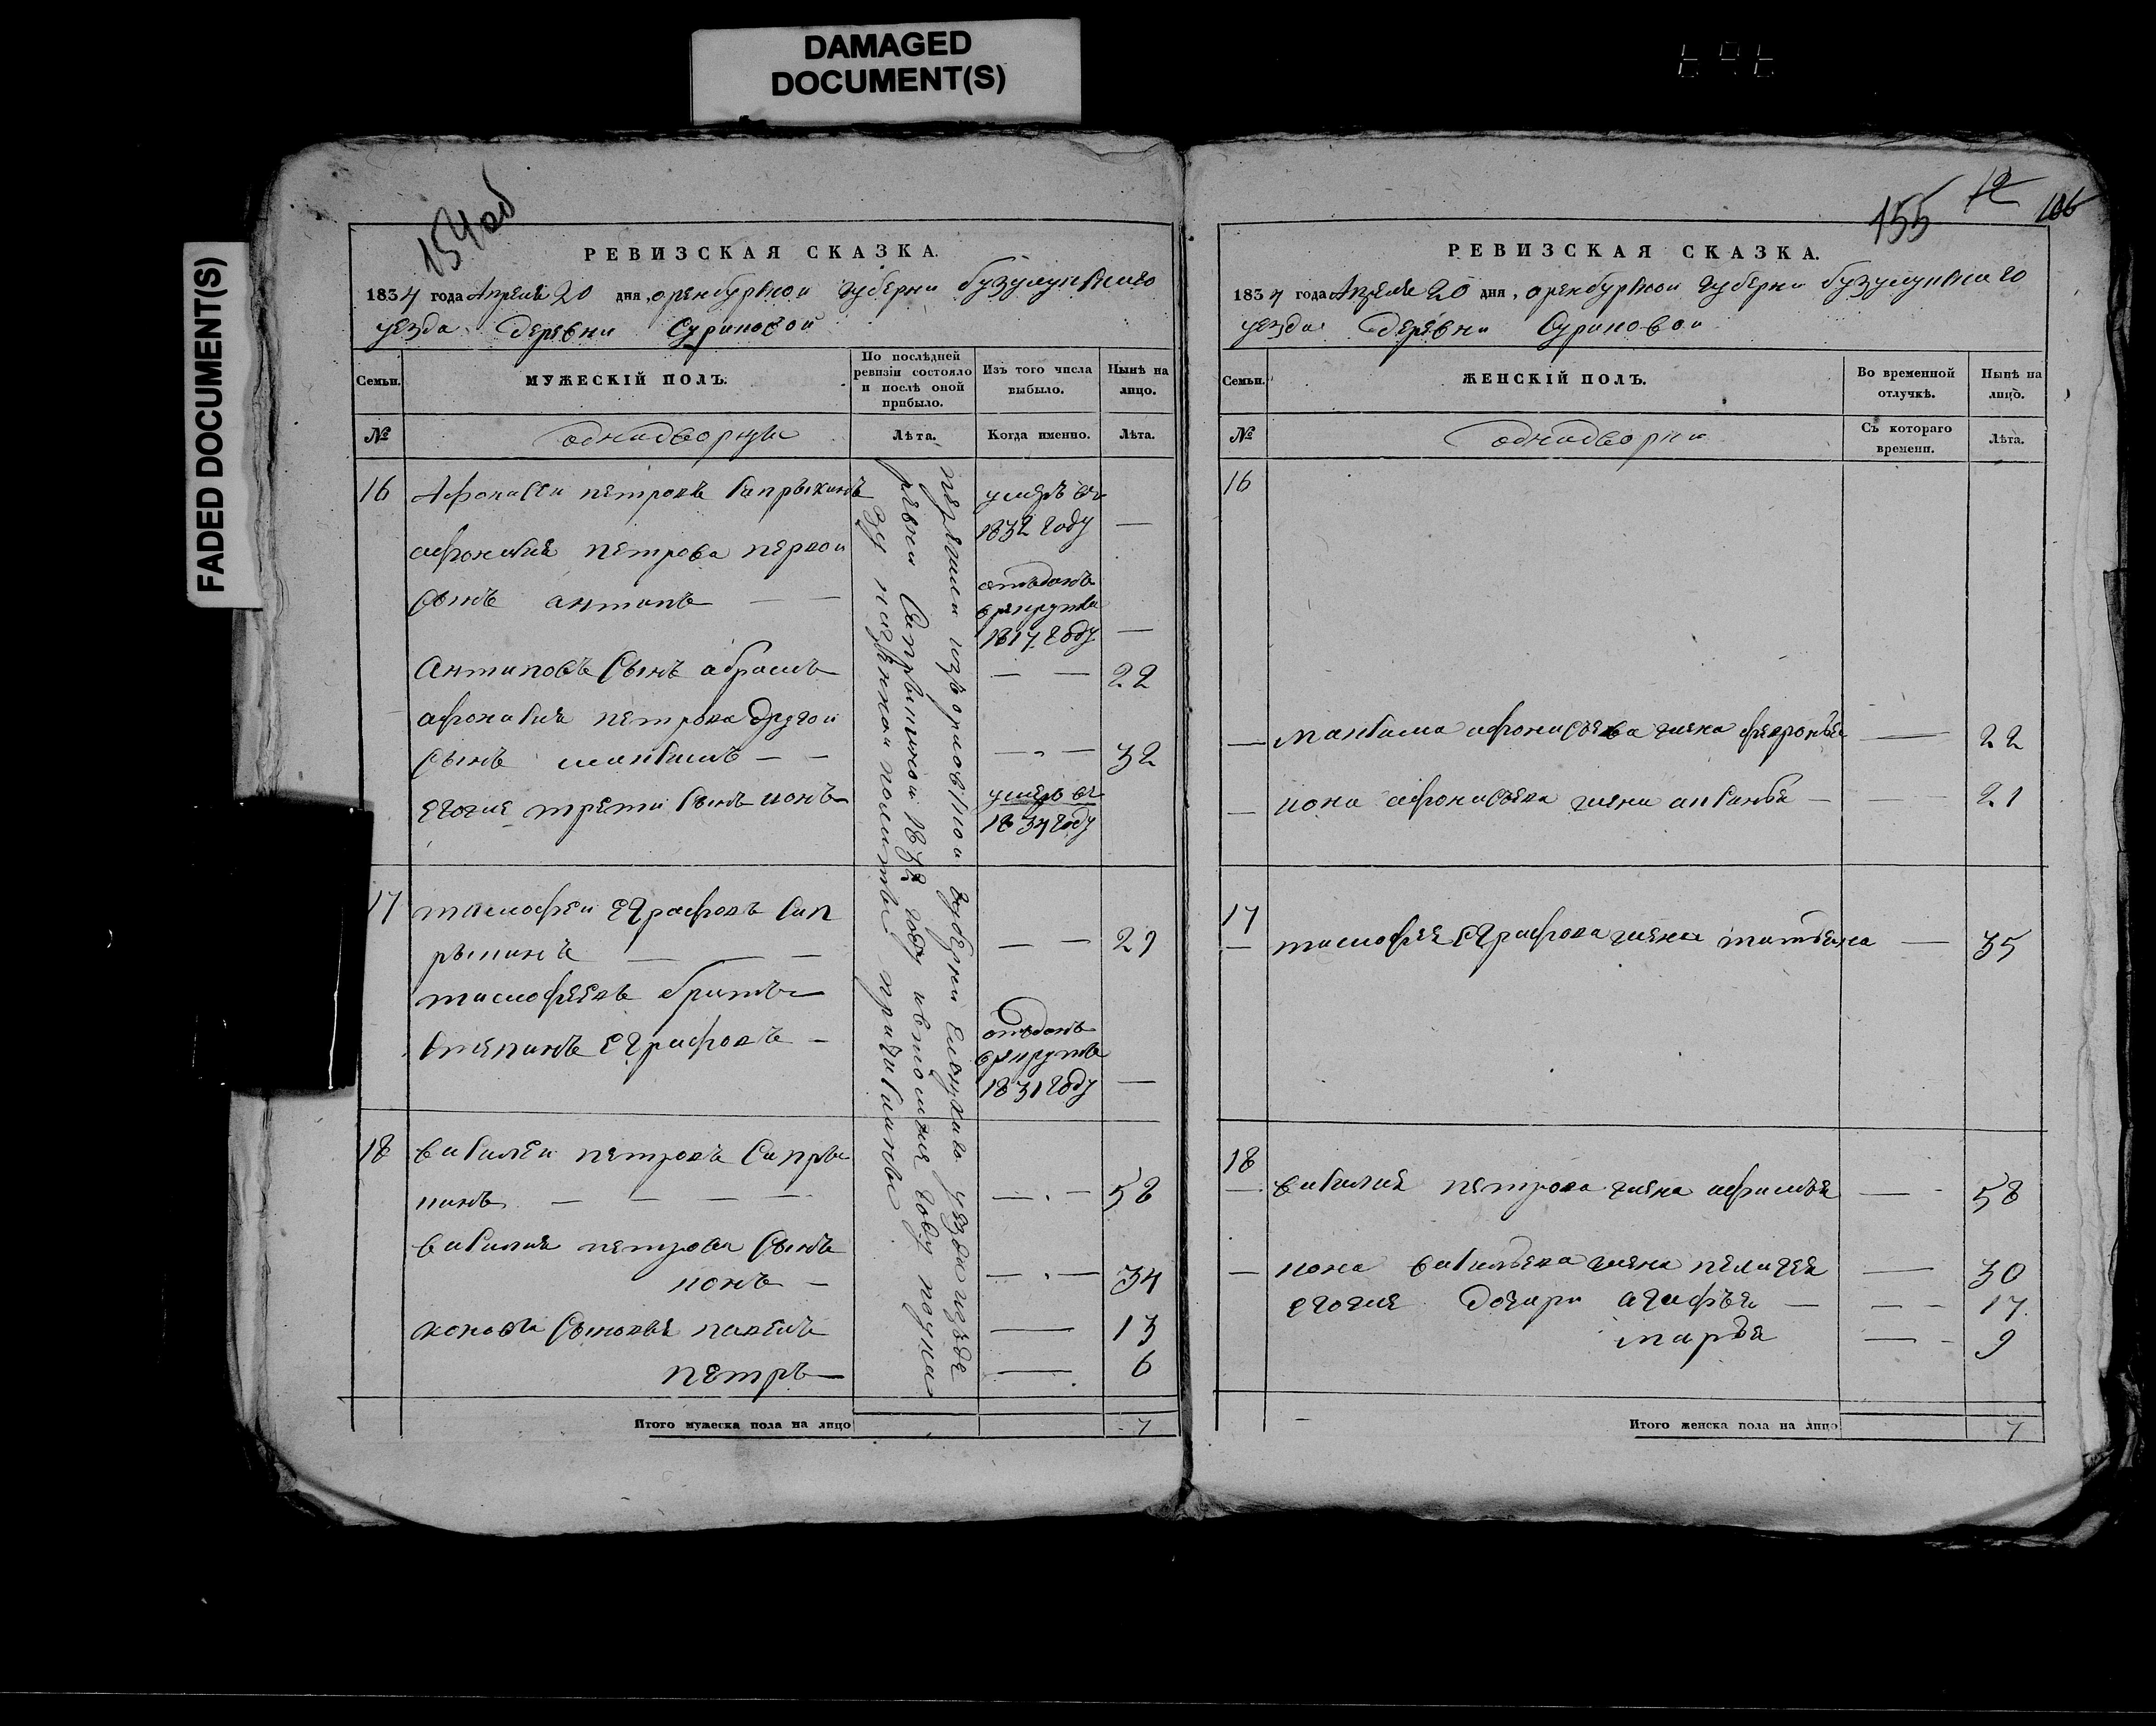 DAMAGED
DOCUMENT(S)
FADED DOCUMENT(S)
154об
РЕВИЗСКАЯ СКАЗКА.
1834 года Апреля 20 дня, оренбурской губерни бузулукскаго
уезда деревни Суриковой
Семьи.
МУЖЕСКІЙ ПОЛЪ.
По послѣдней
ревизіи состояло
и послѣ оной
прибыло.
Изъ того числа
выбыло.
Нынѣ на
лицо.
№
однодворцы
Лѣта.
Когда именно.
Лѣта.
16 Афонасеи петровъ Сапрыкинъ умеръ въ
1832 году —
афонасия петрова первои
сынъ антипъ — — отъданъ
в рекруты
1817 году —
Антиповъ сынъ абрамъ — — 22
афонасия петрова другои
сынъ максимъ — — — 32
егоже трети сынъ ионъ умеръ въ
1834 году
17 тимофеи Еграфовъ Сап
рыкинъ — — 29
тимофеевъ братъ
степанъ Еграфовъ — отъданъ
в рекруты
1831 году —
18 василеи петровъ Сапры
кинъ — — — — 58
василия петрова сынъ
ионъ — — 34
ионовы сыновья павелъ — 13
петръ — 6
губерни уезда
1832 году
Итого мужеска пола на лицо 7
155 12 106
РЕВИЗСКАЯ СКАЗКА.
1834 года Апреля 20 дня, оренбурской губерни бузулукскаго
уезда деревни Суриковой
Семьи.
ЖЕНСКІЙ ПОЛЪ.
Во временной
отлучкѣ.
Нынѣ на
лицо.
№
однодворки
Съ котораго
времени.
Лѣта.
16
— максима афонасьева жена февронья — 22
— иона афонасьева жена аксинья — 21
17
— тимофея Еграфова жена татьяна — 35
18
— василия петрова жена афимья — 58
— иона васильева жена пелагея — 30
егоже дочери агафья — 17
марья — 9
Итого женска пола на лицо 7